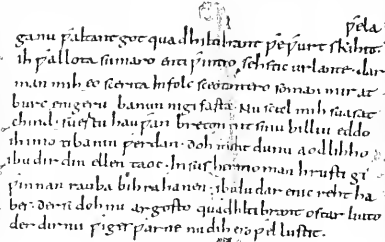 ƿela
ga nu ƿaltant got quad hiltibrant ƿe ƿurt skihit
ih ƿallota sumaro enti ƿintro sehstic ur lante. dar
man mih eo scerita in folc sceotantero so man mir at
burc enigeru banun ni gifasta. Nu scal mih suasat
chind. suertu hauƿan breton mit sinu billiu eddo
ih imo ti banin ƿerdan. doh maht du nu aodlihho
ibu dir din ellen taoc. In sus heremo man hrusti gi
ƿinnan rauba bihrahanen. ibu du dar enic reht ha
bes. der si doh nu argosto quad hiltibrant ostar liuto
der dir nu ƿiges ƿarne nu dih es so ƿel lustit.